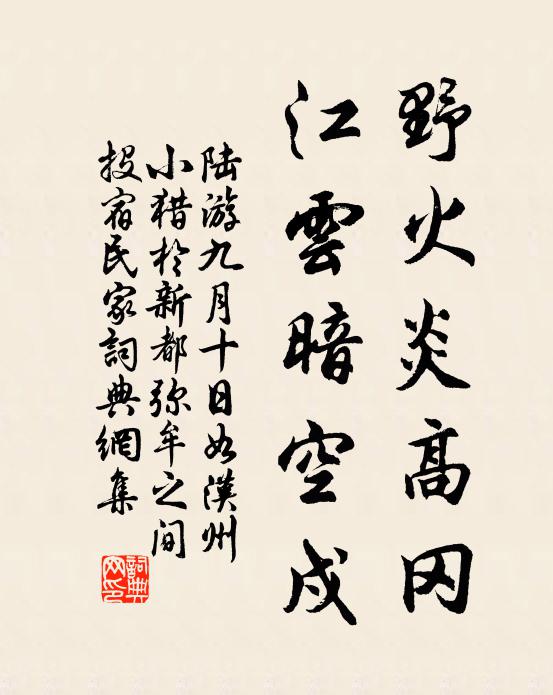 野火炎高冈
江雲暗空戍
陆游九月十日如漢州
小猎於新都弥牟之间
投宿民家詞典網集
詞典网印